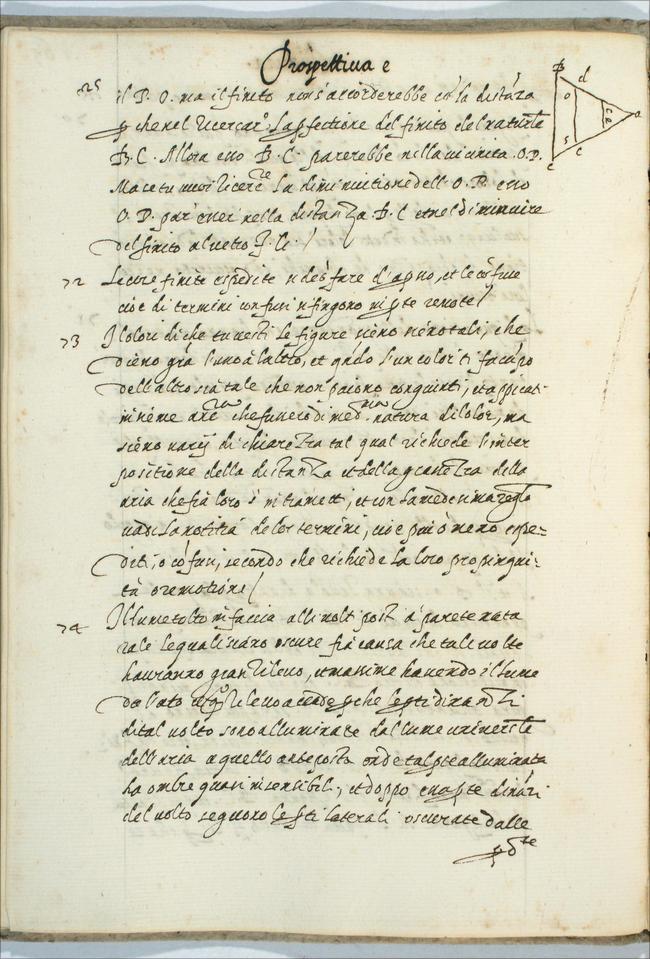 Prospettiua e
25
il B. O. ma il finito non s'accorderebbe cō la distāza
che nel ricercar La pfectione del finito del naturale
B. C. Allora esso B. C. parerebbe nella uicinita O.D.
Ma se tu uuoi ricercare La diminuitione dell O. D. esso
O. D. par essei nella distanza B. C et nel diminuire
del finito al uetro
B
d
o
a
s
c
c
72 Le cose finite espedite si deōfare d'apso, et le cōfuse
cioè di termini confusi si fingono in pte remote /
73 I Colori di che tu uesti Le figure sieno tali, che
dieno grā l'uno à laltro, et qñdo l'un color ti fa cāpo
dell altro sia tale che non paiono congiunti, et appicati
insieme che fussero di med.ma natura di color, ma
sieno uarij di chiarezza tal qual richiede l'inter
positione della distanza et della grossezza della
aria che frà loro s'intramett, et con La medesima regola
uadi La notitia de lor termini, cioè piu ò meno espe-
diti, o cōfusi, secondo che richiede La loro propinqui-
tà o remotione /
74 Il lume tolto in faccia alli uolti posti à parete late
rale Lequali siano oscure fia causa che tali uolti
hauranno gran rileuo, et massime hauendo il lume
da lato rileuo accade pche le pti dinanzi
di tal uolto sono alluminate dal lume uniuersale
dell'aria a quello anteposta onde tal pte alluminata
ha ombre quasi insensibili, et doppo essa pte dināzi
del uolto seguono le pti laterali oscurate dalle
pdte